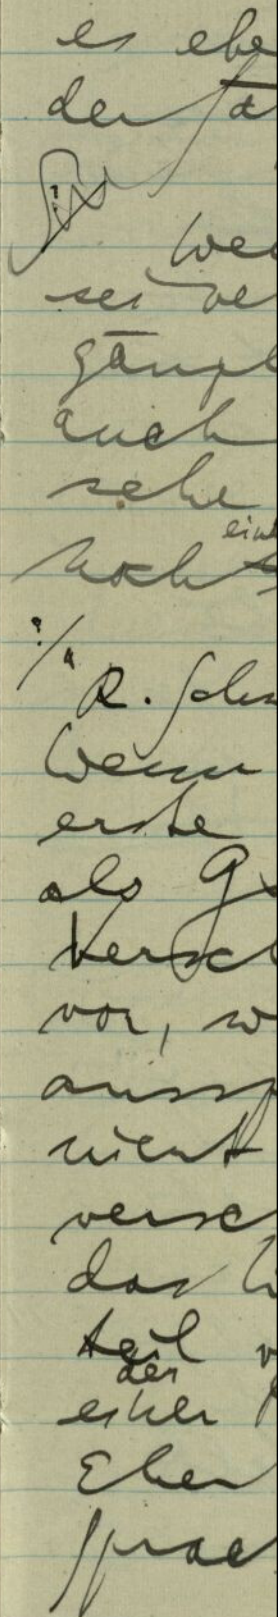 es ebe
der Ta
Wee
sei ve
gäng
auch
sehe
ein
noch
R. Schu
Wenn
erste
als G
Versch
vor, w
aussp
nicht
versc
das h
teil v
der
einer
Eben
sprac